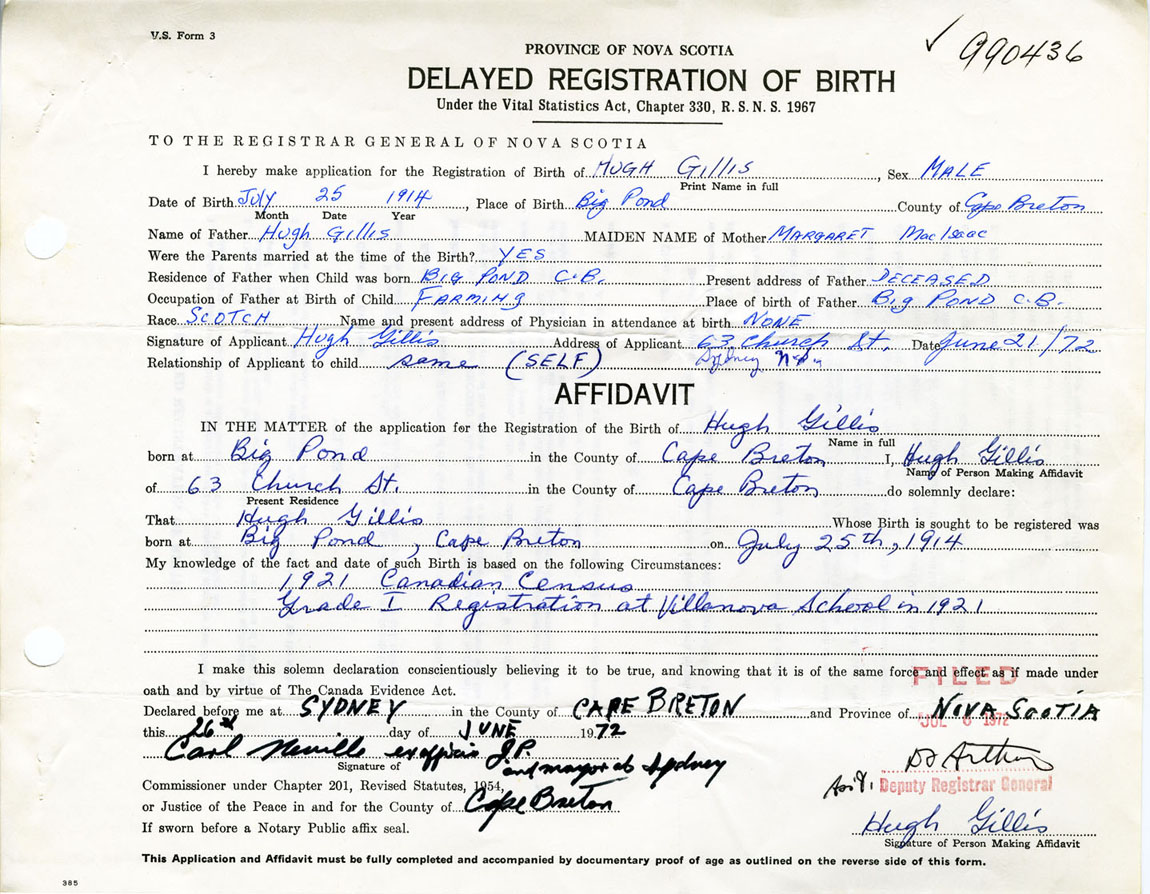 V.S. Form 3
✓ 990436
PROVINCE OF NOVA SCOTIA
DELAYED REGISTRATION OF BIRTH
Under the Vital Statistics Act, Chapter 330, R. S. N. S. 1967
TO THE REGISTRAR GENERAL OF NOVA SCOTIA
I hereby make application for the Registration of Birth of HUGH GILLIS, Sex MALE
Print Name in full
Date of Birth July 25 1914, Place of Birth Big Pond County of Cape Breton
Month Date Year
Name of Father Hugh Gillis MAIDEN NAME of Mother MARGARET MacIsaac
Were the Parents married at the time of the Birth? YES
Residence of Father when Child was born BIG POND C.B. Present address of Father DECEASED
Occupation of Father at Birth of Child FARMING Place of birth of Father BIG POND C.B.
Race SCOTCH Name and present address of Physician in attendance at birth NONE
Signature of Applicant Hugh Gillis Address of Applicant 63 Church St. Date June 21/72
Sydney N.S.
Relationship of Applicant to child same (SELF)
AFFIDAVIT
IN THE MATTER of the application for the Registration of the Birth of Hugh Gillis
Name in full
born at Big Pond in the County of Cape Breton I, Hugh Gillis
Name of Person Making Affidavit
of 63 Church St. in the County of Cape Breton do solemnly declare:
Present Residence
That Hugh Gillis Whose Birth is sought to be registered was
born at Big Pond, Cape Breton on July 25th, 1914
My knowledge of the fact and date of such Birth is based on the following Circumstances:
1921 Canadian Census
Grade I Registration at Villanova School in 1921
I make this solemn declaration conscientiously believing it to be true, and knowing that it is of the same force and effect as if made under
FILED
oath and by virtue of The Canada Evidence Act.
Declared before me at SYDNEY in the County of CAPE BRETON and Province of NOVA SCOTIA
JUL 6 1972
this 26th day of JUNE 1972
Carl Neville ex officio J.P.
and mayor of Sydney
Signature of
Arthur
Commissioner under Chapter 201, Revised Statutes, 1954,
Ass't. Deputy Registrar General
or Justice of the Peace in and for the County of Cape Breton
Hugh Gillis
If sworn before a Notary Public affix seal.
Signature of Person Making Affidavit
This Application and Affidavit must be fully completed and accompanied by documentary proof of age as outlined on the reverse side of this form.
385